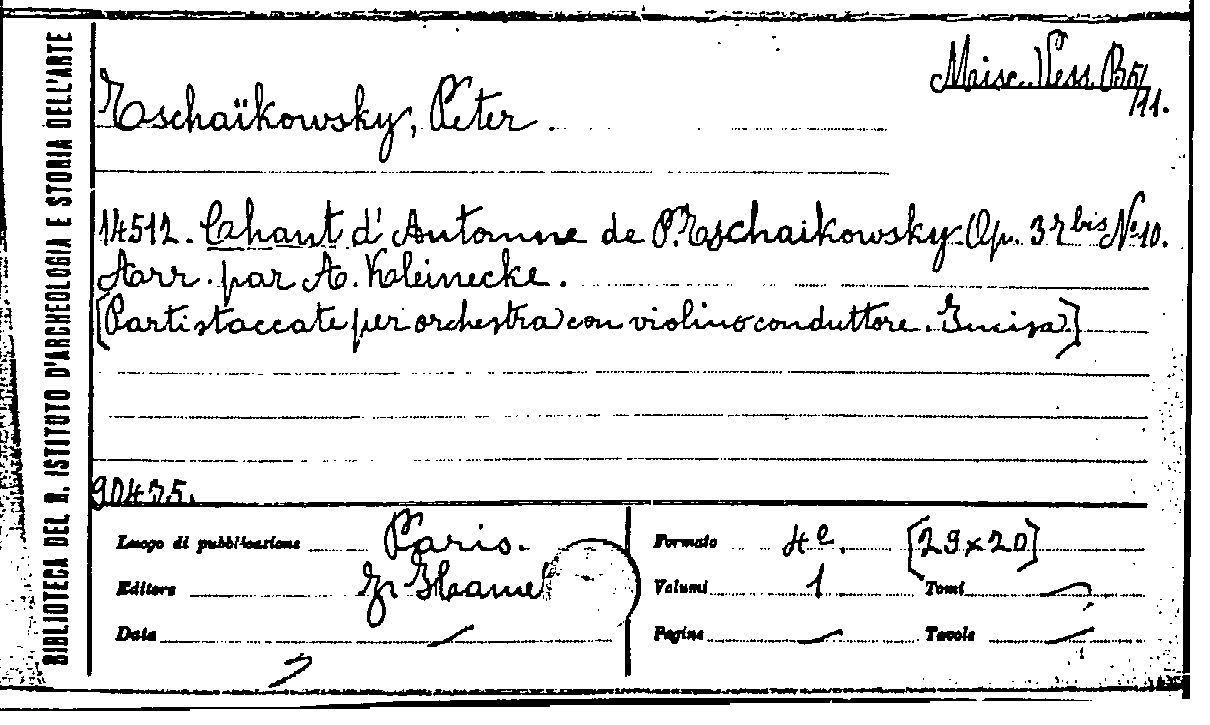 BIBLIOTECA DEL R. ISTITUTO D'ARCHEOLOGIA E STORIA DELL'ARTE
Misc. Vess. B5/11.
Tschaïkowsky, Peter.
14512. Chant d'Automne de P. Tschaikowsky. Op. 37 bis No 10.
Arr. par A. Kleinecke.
[Parti staccate per orchestra con violino conduttore. Incisa]
90475.
Luogo di pubblicazione Paris.
Editore Hamel
Data /
Formato 4º. [29x20]
Volumi 1 Tomi /
Pagine / Tavole /